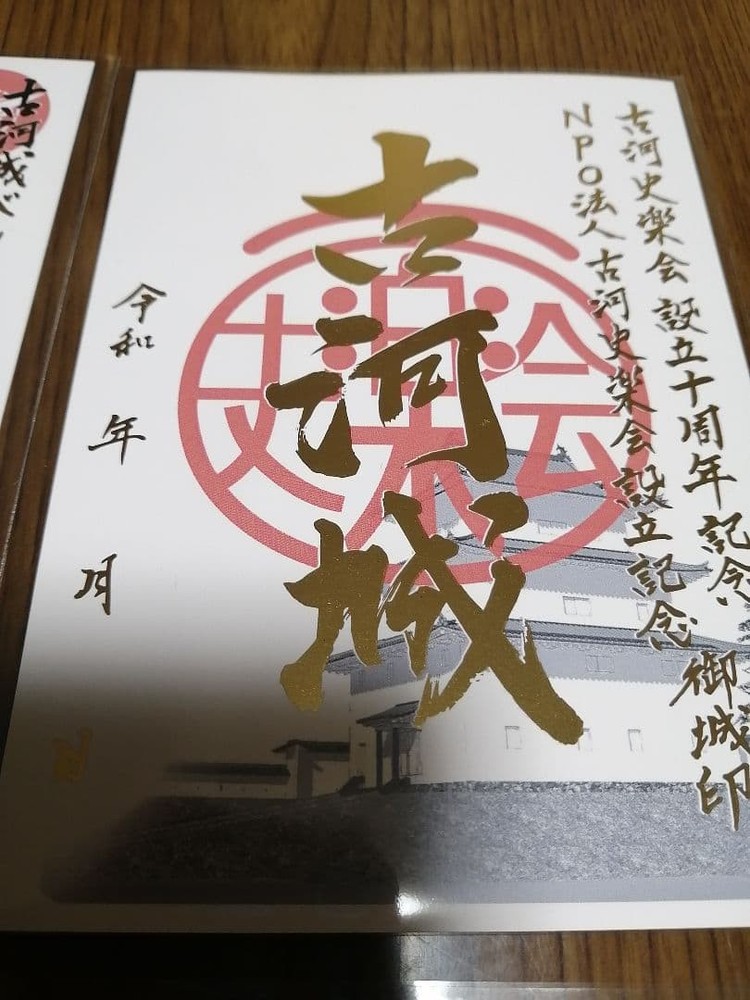 古河史楽会 設立十周年 記念 御城印
NPO法人 古河史楽会 設立記念
古河城
古河
史楽会
令和 年 月 日
古河城